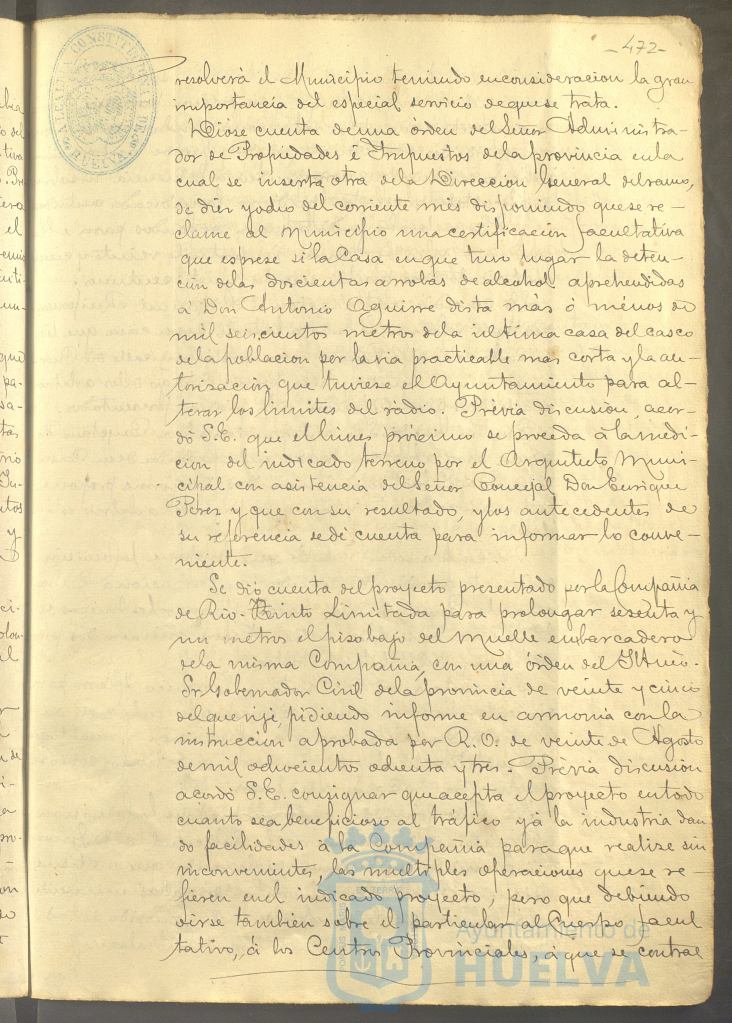 -472-
ALCALDIA CONSTITUCIONAL DE HUELVA
resolverá el Municipio teniendo en consideracion la gran
importancia del especial servicio de que se trata.
Dióse cuenta de una órden del Señor Administra-
dor de Propiedades é Impuestos de la provincia en la
cual se inserta otra de la Direccion General del ramo,
de diez y ocho del corriente mes disponiendo que se re-
clame al Municipio una certificación facultativa
que esprese si la Casa en que tuvo lugar la deten-
ción de las doscientas arrobas de alcohol aprehendidas
á Don Antonio Aguirre dista más ó ménos de
mil seiscientos metros de la última casa del casco
de la poblacion por la via practicable mas corta y la au-
torización que tuviese el Ayuntamiento para al-
terar los límites del rádio. Prévia discusion, acor-
dó S.E. que el lúnes próximo se proceda á la medi-
cion del indicado terreno por el Arquitecto Muni-
cipal con asistencia del Señor Concejal Don Enrique
Perez y que con su resultado, y los antecedentes de
su referencia se dé cuenta para informar lo conve-
niente.
Se dió cuenta del proyecto presentado por la Compañia
de Rio-Tinto Limitada para prolongar sesenta y
un metros el piso bajo del Muelle embarcadero
de la misma Compañia, con una órden del Iltmo.
Sr. Gobernador Civil de la provincia de veinte y cinco
del que rije, pidiendo informe en armonía con la
instruccion aprobada por R.O. de veinte de Agosto
de mil ochocientos ochenta y tres. Prévia discusion
acordó S.E. consignar que acepta el proyecto en todo
cuanto sea beneficioso al tráfico y á la industria dan
do facilidades á la Compañia para que realize sin
inconvenientes, las multiples operaciones que se re-
fieren en el indicado proyecto, pero que debiendo
oirse tambien sobre el particular al Cuerpo facul
tativo, á los Centros Provinciales, á que se contrae
Ayuntamiento de
HUELVA